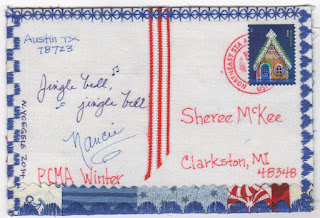 Austin TX
78723
Jingle bell,
jingle bell
Nancie
PCMA Winter
NORTHEAST STA
Sheree McKee
Clarkston, MI
48348